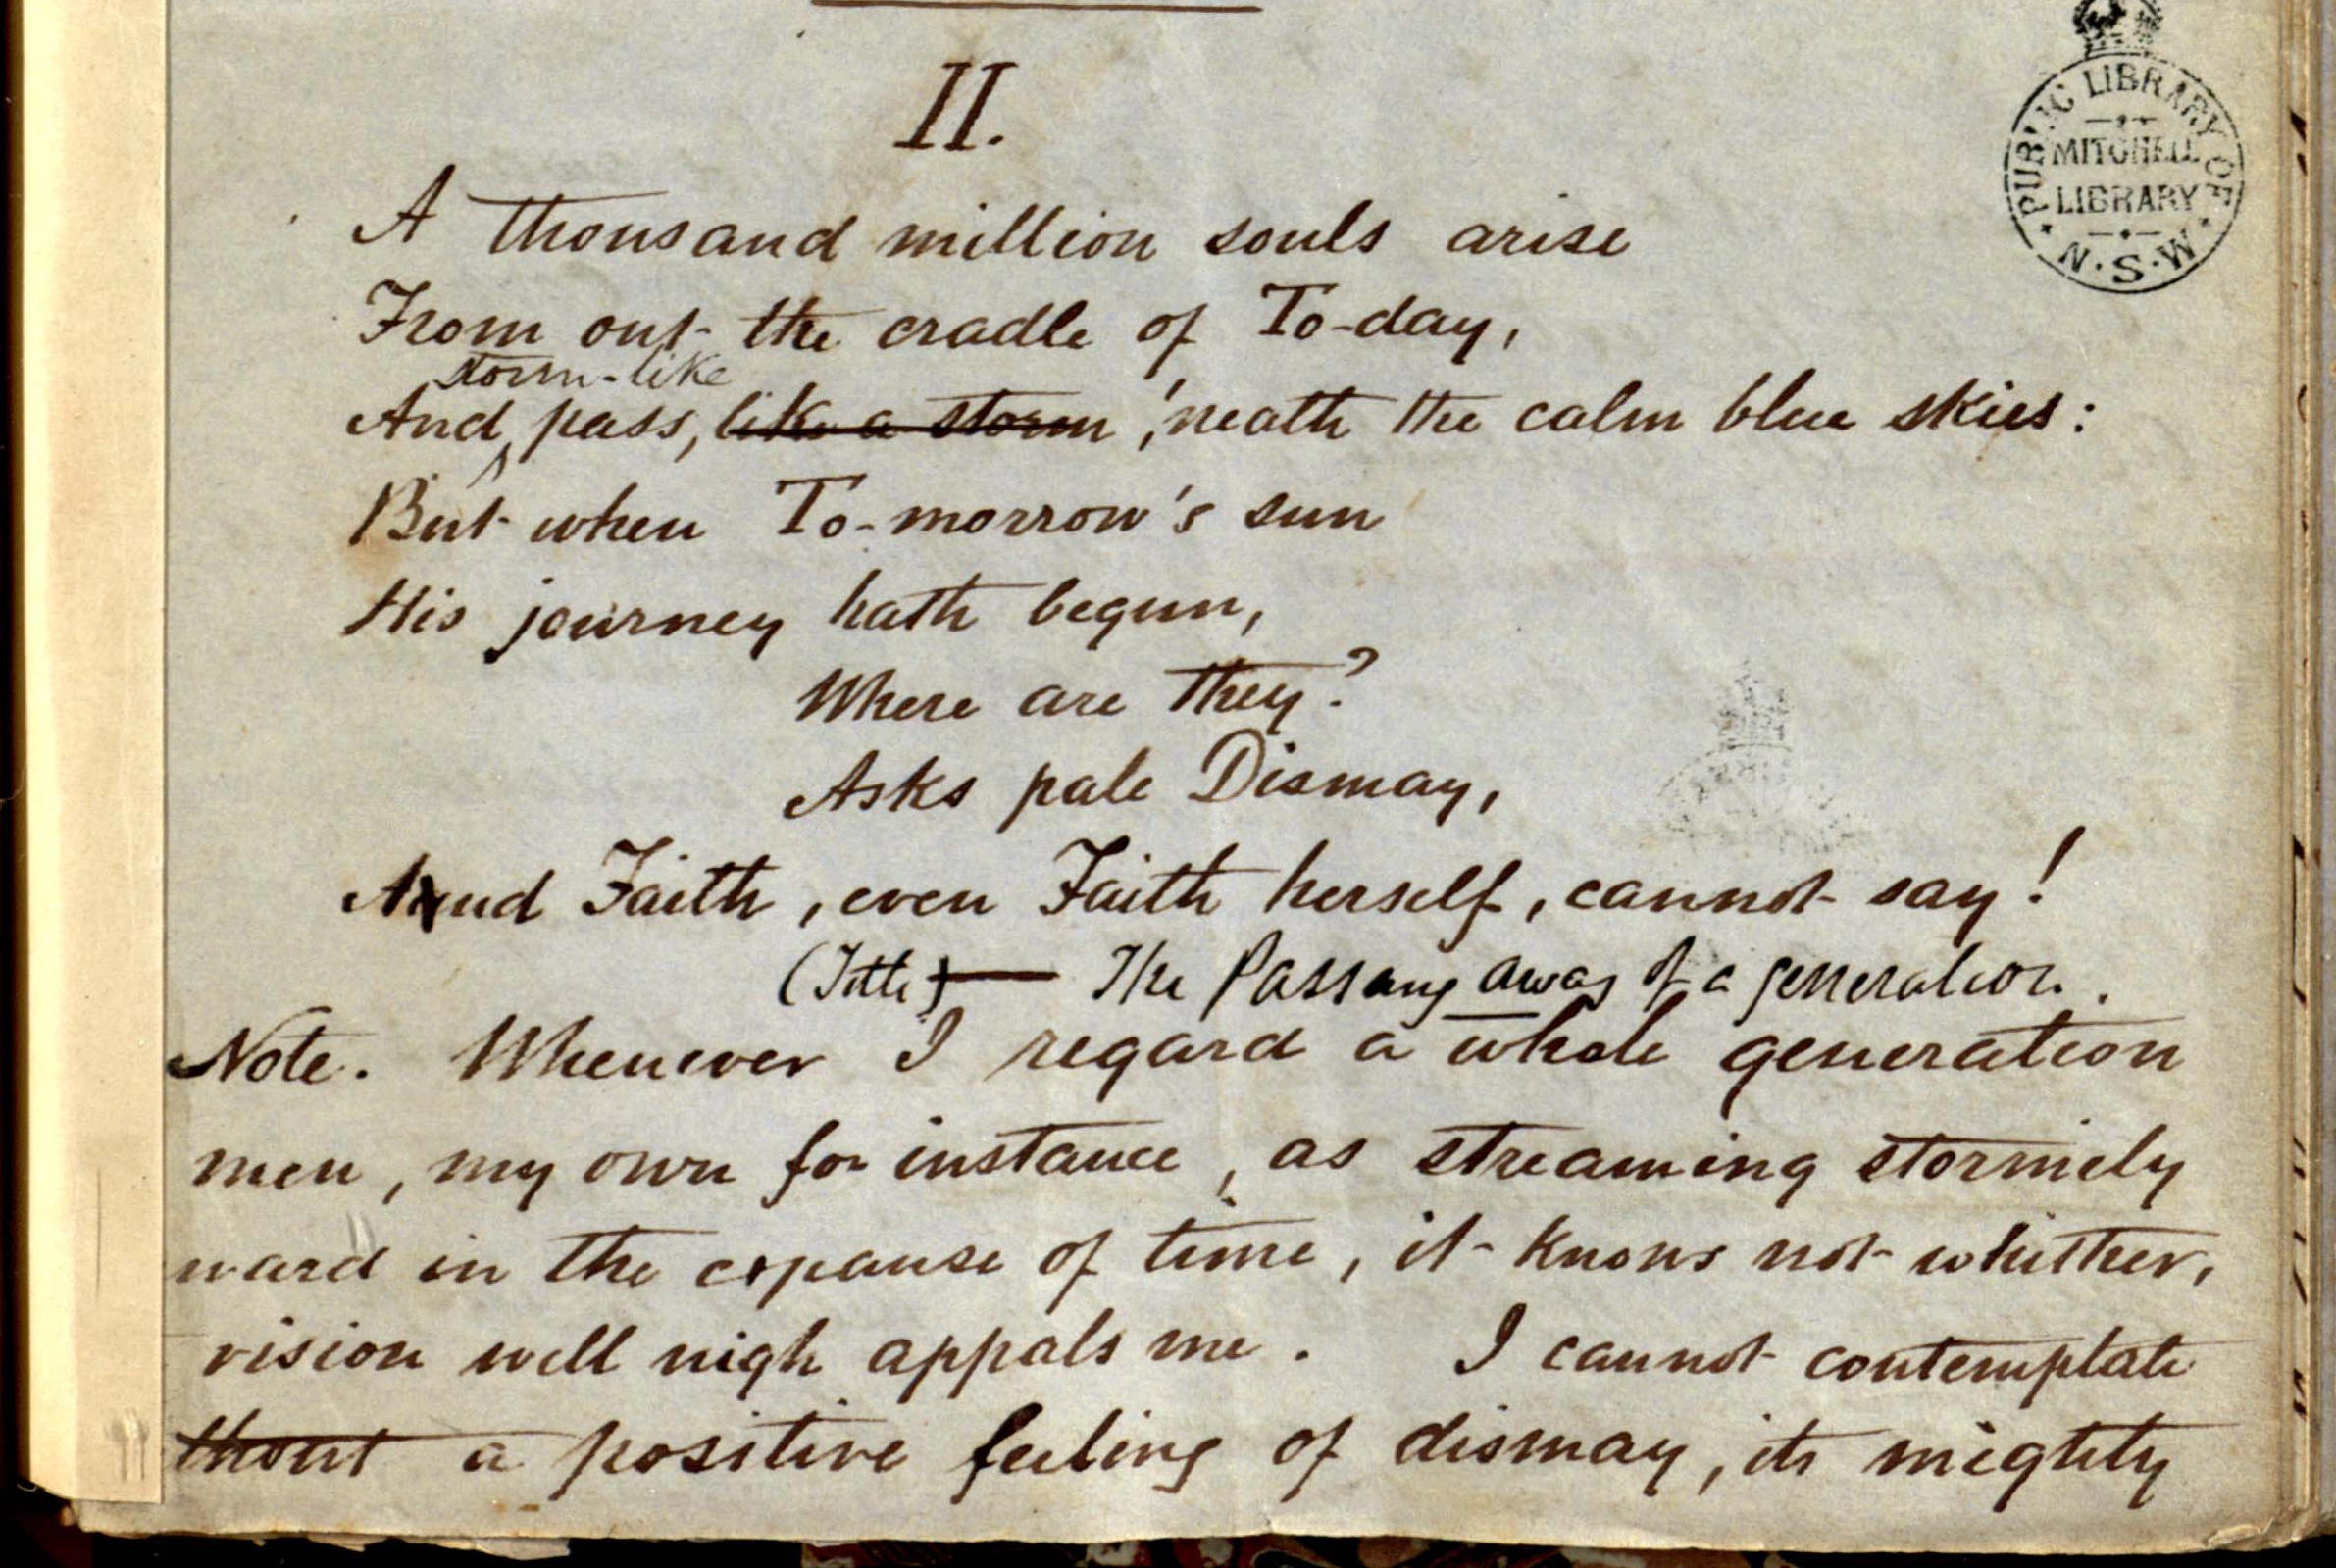 II.
PUBLIC LIBRARY OF
MITCHELL
LIBRARY
N.S.W.
A thousand million souls arise
From out the cradle of To-day,
storm-like
And, pass, like a storm, 'neath the calm blue skies:
But when To-morrow's sun
His journey hath begun,
Where are they?
Asks pale Dismay,
And Faith, even Faith herself, cannot say!
(Title) — The Passing away of a generation.
Note. Whenever I regard a whole generation
men, my own for instance, as streaming stormily
ward in the expanse of time, it knows not whither,
vision well nigh appals me. I cannot contemplate
thout a positive feeling of dismay, its mighty